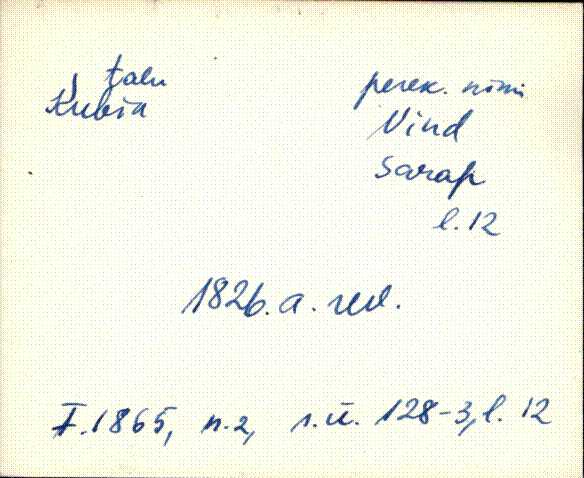 talu
Kubja
perek. nimi
Vind
Sarap
l. 12
1826. a. rev.
F. 1865, n. 2, s.ü. 128-3, l. 12